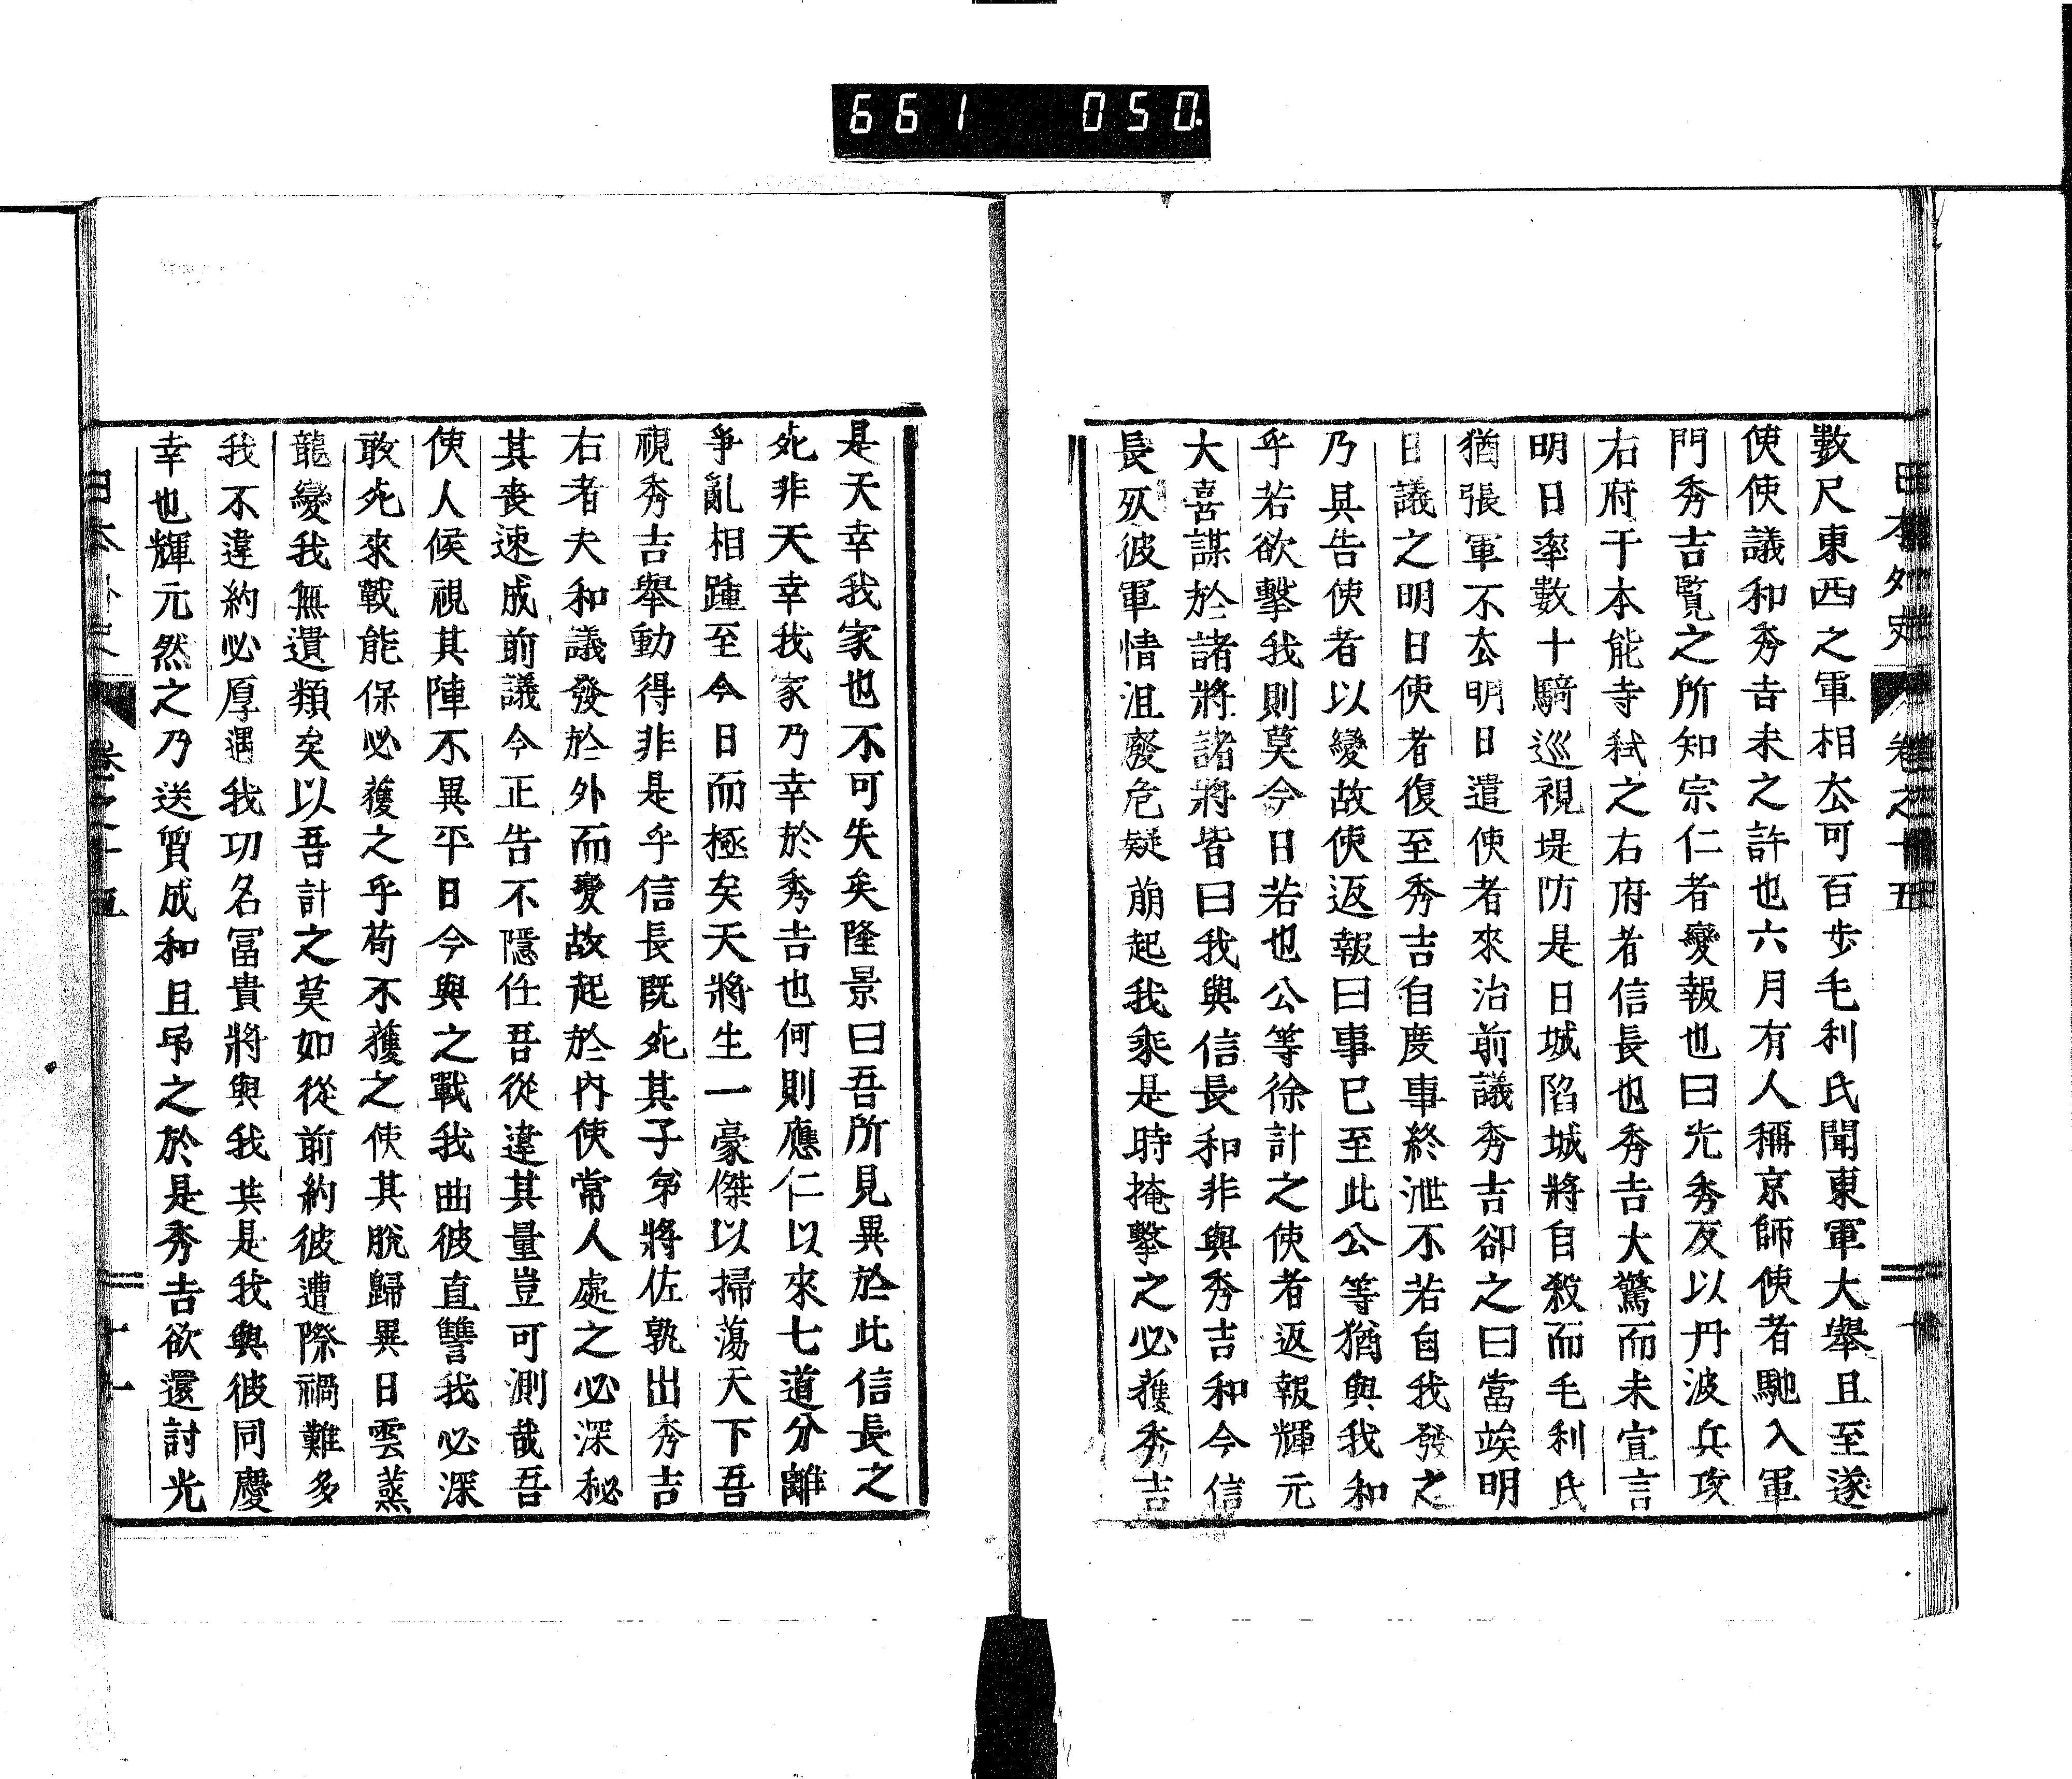 661 050
日本外史 卷之十五 十
數尺東西之軍相去可百步毛利氏聞東軍大舉且至遂
使使議和秀吉未之許也六月有人稱京師使者馳入軍
門秀吉覽之所知宗仁者變報也曰光秀反以丹波兵攻
右府于本能寺弒之右府者信長也秀吉大驚而未宣言
明日率數十騎巡視堤防是日城陷城將自殺而毛利氏
猶張軍不去明日遣使者來治前議秀吉卻之曰當竢明
日議之明日使者復至秀吉自度事終泄不若自我發之
乃具告使者以變故使返報曰事已至此公等猶與我和
乎若欲擊我則莫今日若也公等徐計之使者返報輝元
大喜謀於諸將諸將皆曰我與信長和非與秀吉和今信
長死彼軍情沮廢危疑崩起我乘是時掩擊之必獲秀吉
是天幸我家也不可失矣隆景曰吾所見異於此信長之
死非天幸我家乃幸於秀吉也何則應仁以來七道分離
爭亂相踵至今日而極矣天將生一豪傑以掃蕩天下吾
視秀吉舉動得非是乎信長既死其子弟將佐孰出秀吉
右者夫和議發於外而變故起於內使常人處之必深秘
其喪速成前議今正告不隱任吾從違其量豈可測哉吾
使人候視其陣不異平日今與之戰我曲彼直讐我必深
敢死來戰能保必獲之乎苟不獲之使其脫歸異日雲蒸
龍變我無遺類矣以吾計之莫如從前約彼遭際禍難多
我不違約必厚遇我功名冨貴將與我共是我與彼同慶
幸也輝元然之乃送質成和且吊之於是秀吉欲還討光
日本外史 卷之十五 十一